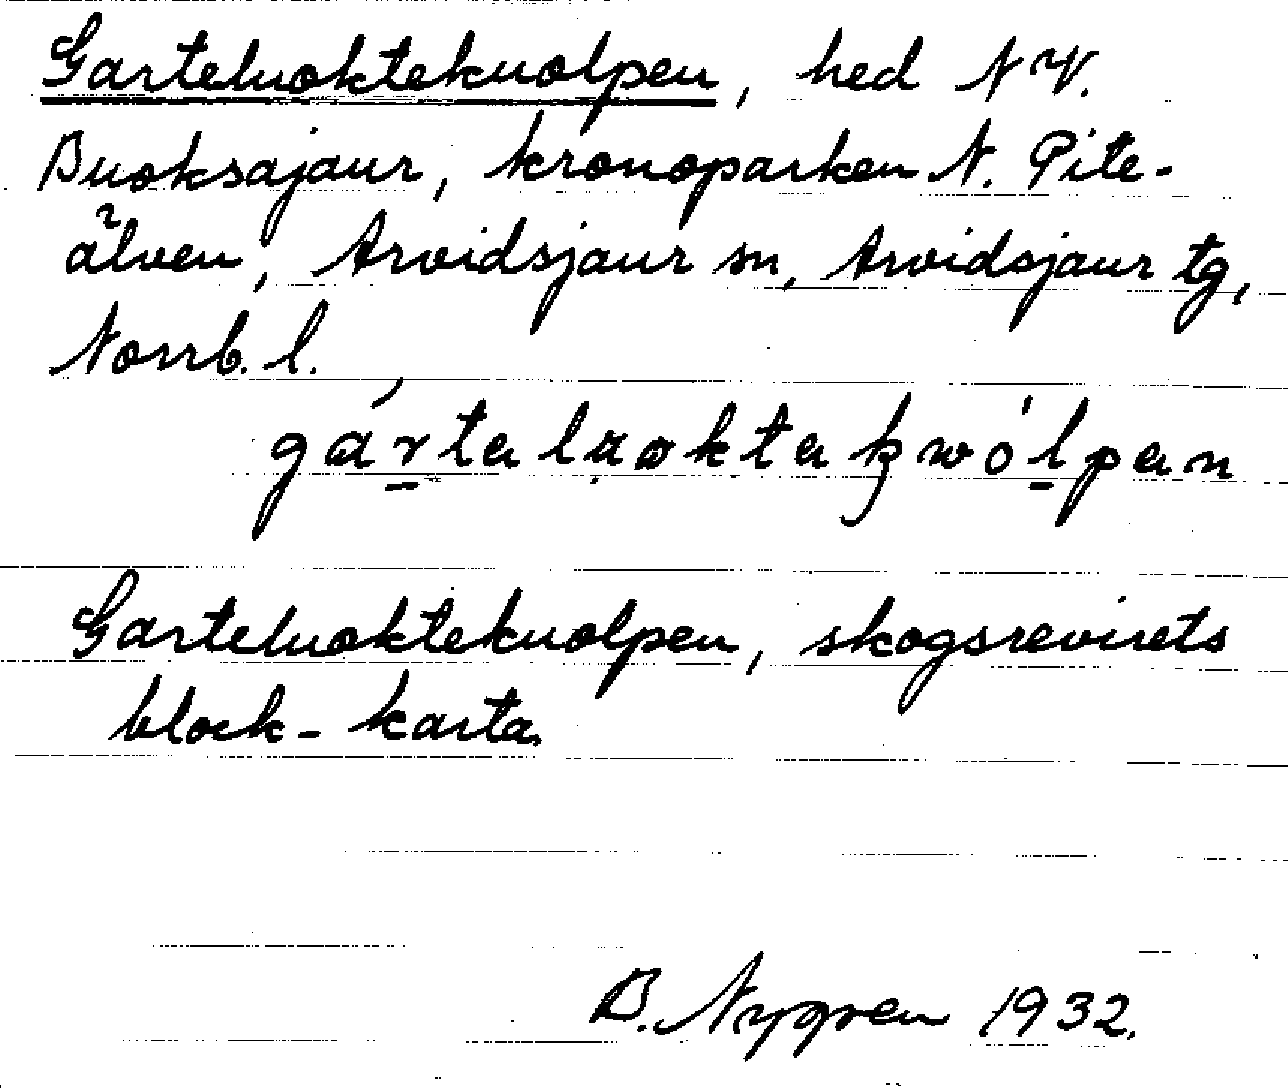 Garteluoktekuolpen, hed NV.
Buoksajaur, kronoparken N. Pite-
älven, Arvidsjaur sn, Arvidsjaur tg,
Norrb. l.
Garteluoktekuolpen, skogsrevirets
block-karta.
B. Nygren 1932.